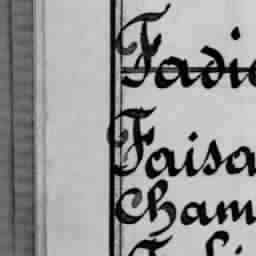 Fadi
Faisa
Cham